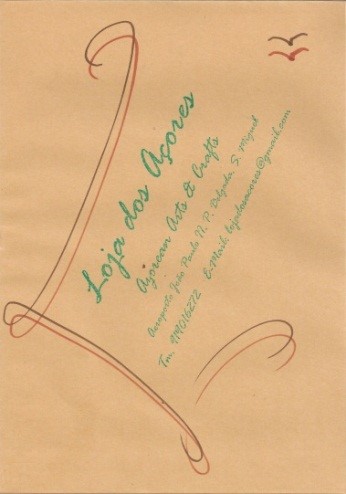 Loja dos Açores
Azorean Arts & Crafts
Aeroporto João Paulo II P. Delgada, S. Miguel
Tm. 919016272 E-Mail: lojadosacores@gmail.com